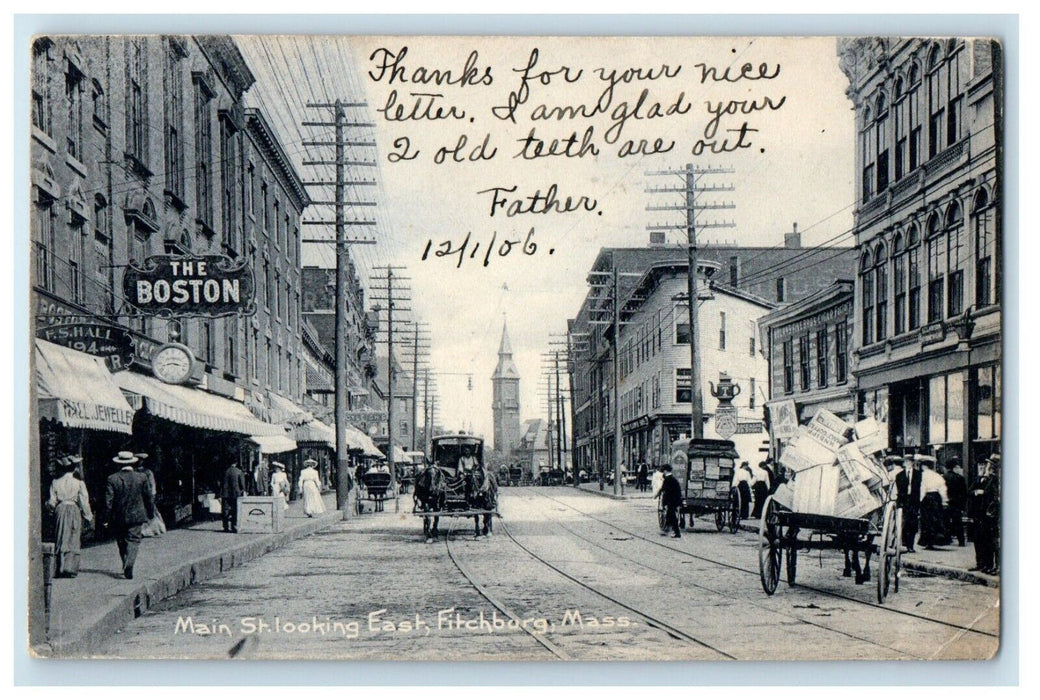 Thanks for your nice
letter. I am glad your
2 old teeth are out.
Father.
12/1/06.
THE
BOSTON
F.S. HALL
194
HALL JEWELER
Main St. looking East, Fitchburg, Mass.